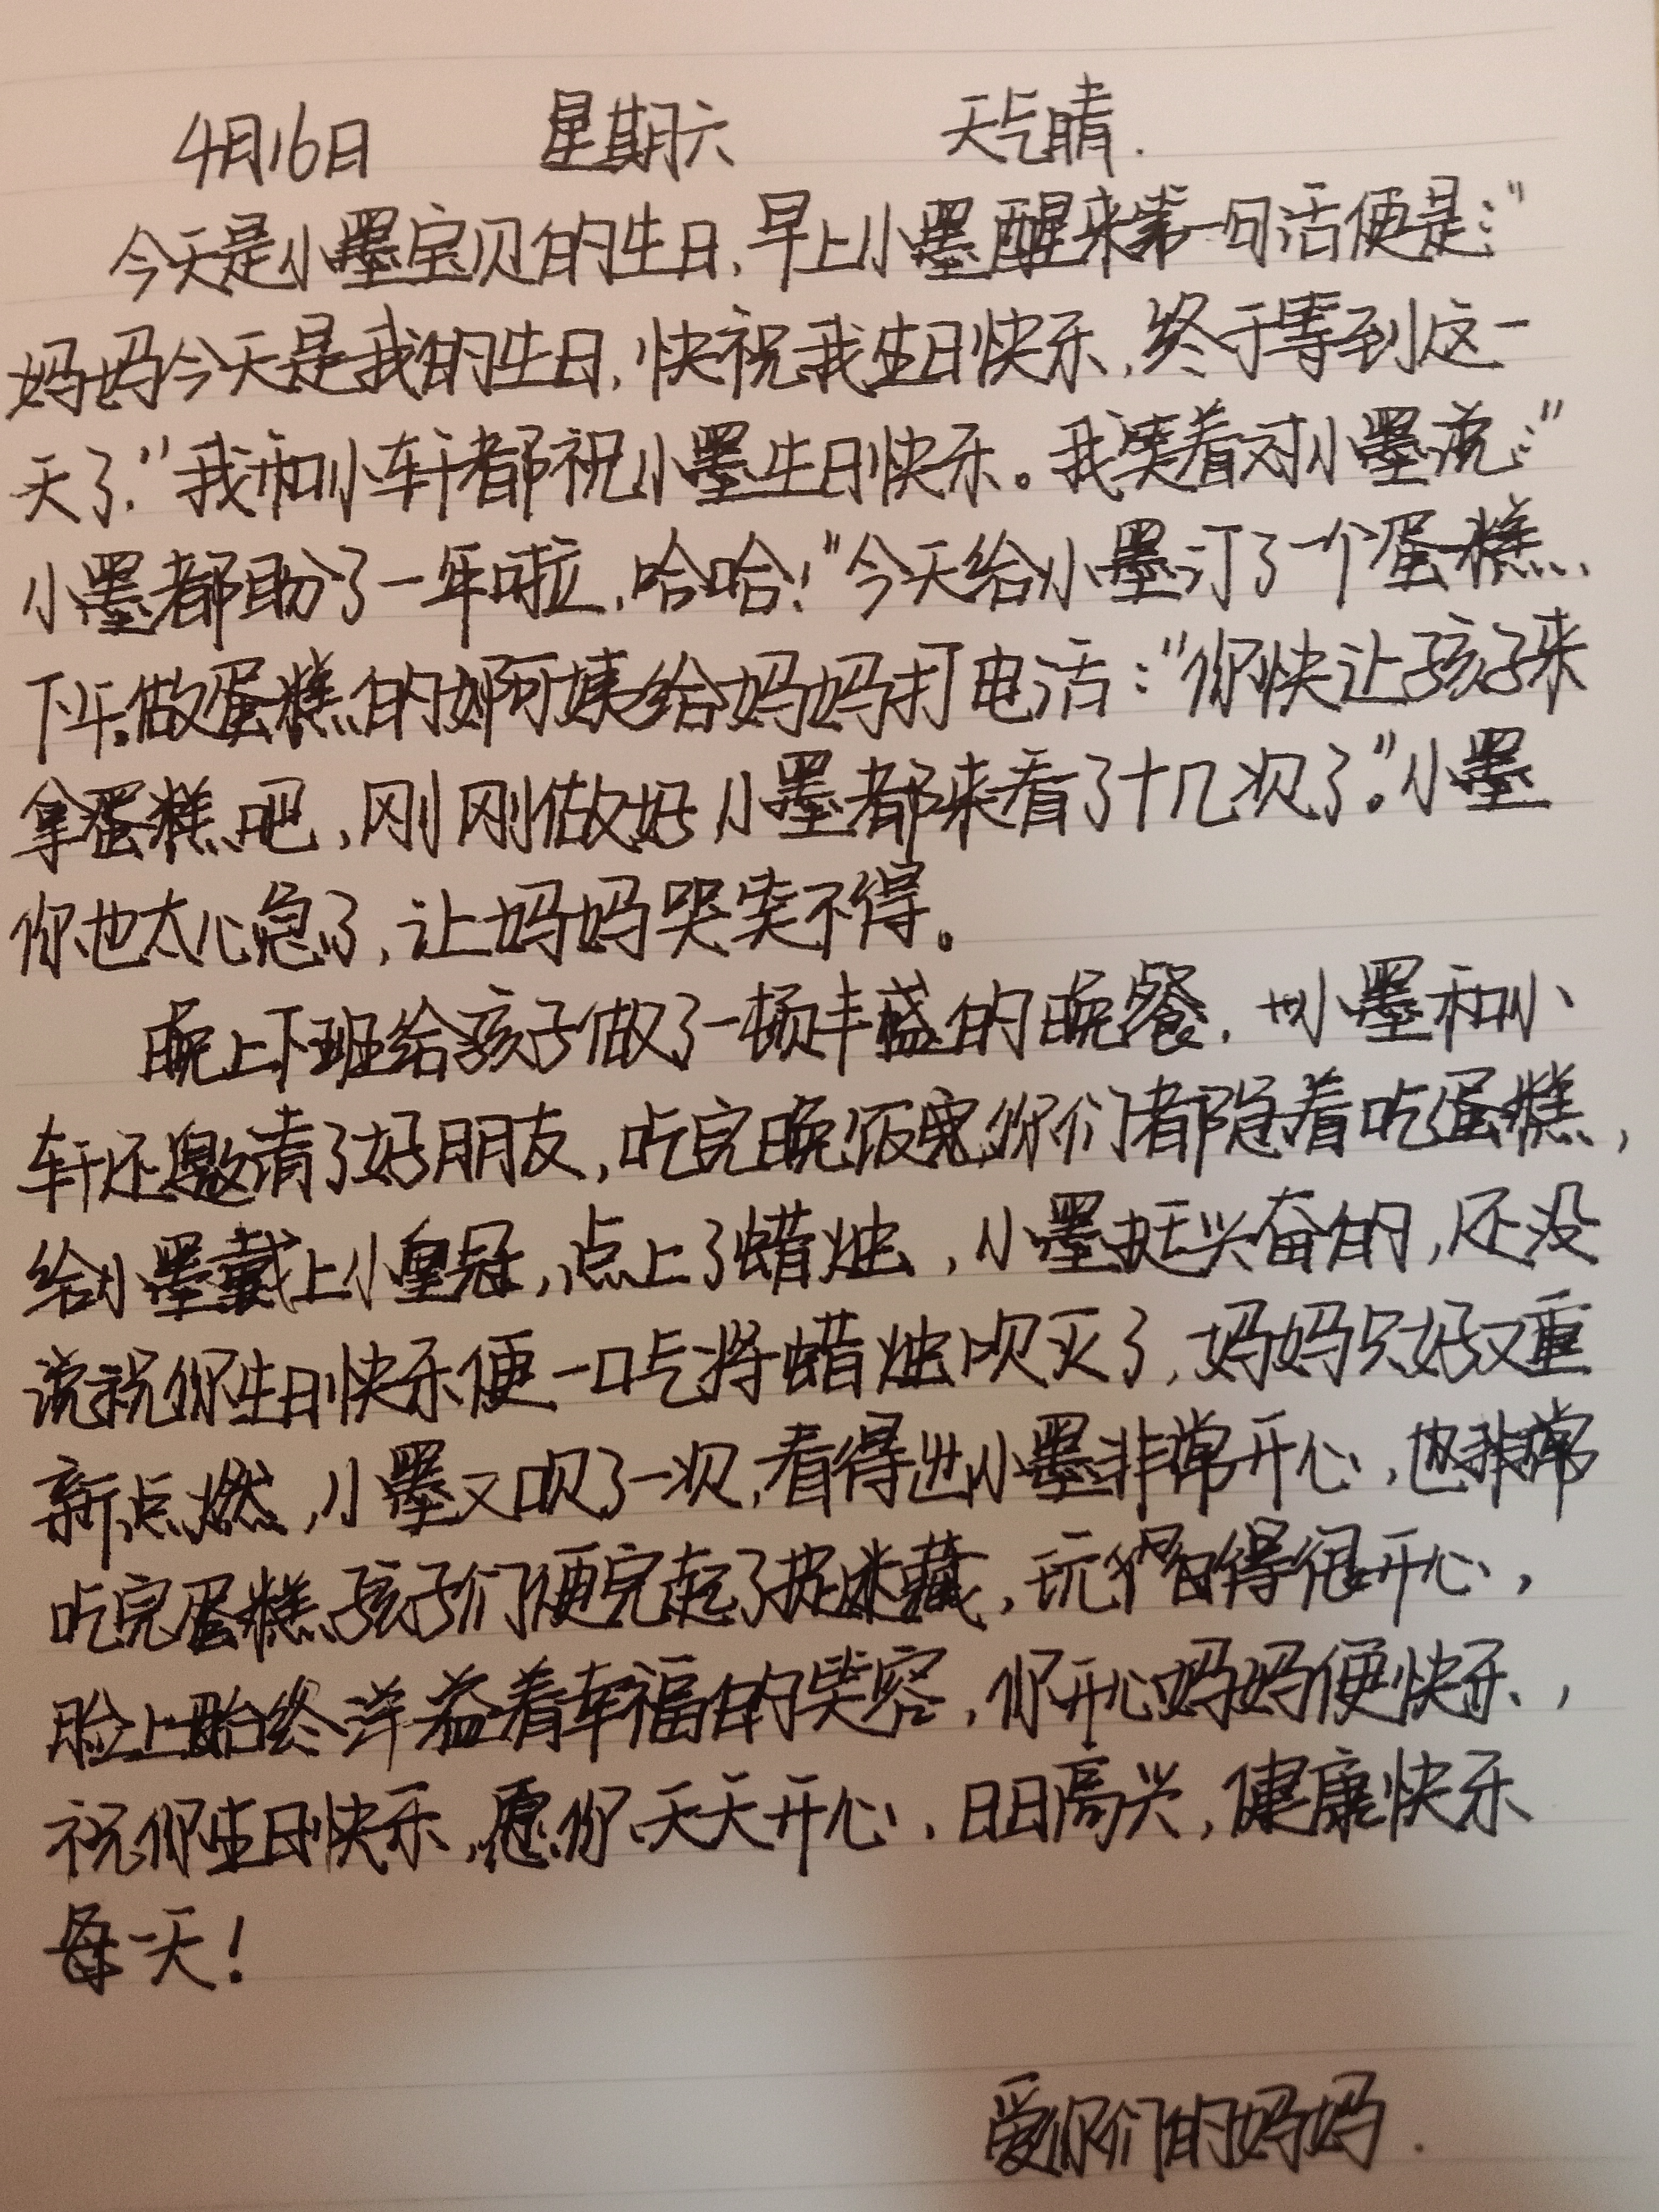 4月16日 星期六 天气晴.
今天是小墨宝贝的生日,早上小墨醒来第一句话便是:"
妈妈今天是我的生日,快祝我生日快乐,终于等到这一
天了."我和小轩都祝小墨生日快乐。我笑着对小墨说:"
小墨都盼了一年啦,哈哈!"今天给小墨订了一个蛋糕、
下午做蛋糕的阿姨给妈妈打电话:"你快让孩子来
拿蛋糕吧,刚刚做好小墨都来看了十几次了。"小墨
你也太心急了,让妈妈哭笑不得。
晚上下班给孩子做了一顿丰盛的晚餐,小墨和小
轩还邀请了好朋友,吃完晚饭你们都急着吃蛋糕,
给小墨戴上小皇冠,点上了蜡烛,小墨挺兴奋的,还没
说祝你生日快乐便一口气将蜡烛吹灭了,妈妈只好又重
新点燃,小墨又吹了一次,看得出小墨非常开心,也非常
吃完蛋糕孩子们便完起了捉迷藏,玩得很开心,
脸上始终洋溢着幸福的笑容,你开心妈妈便快乐,
祝你生日快乐,愿你天天开心,日日高兴,健康快乐
每一天!
爱你们的妈妈.